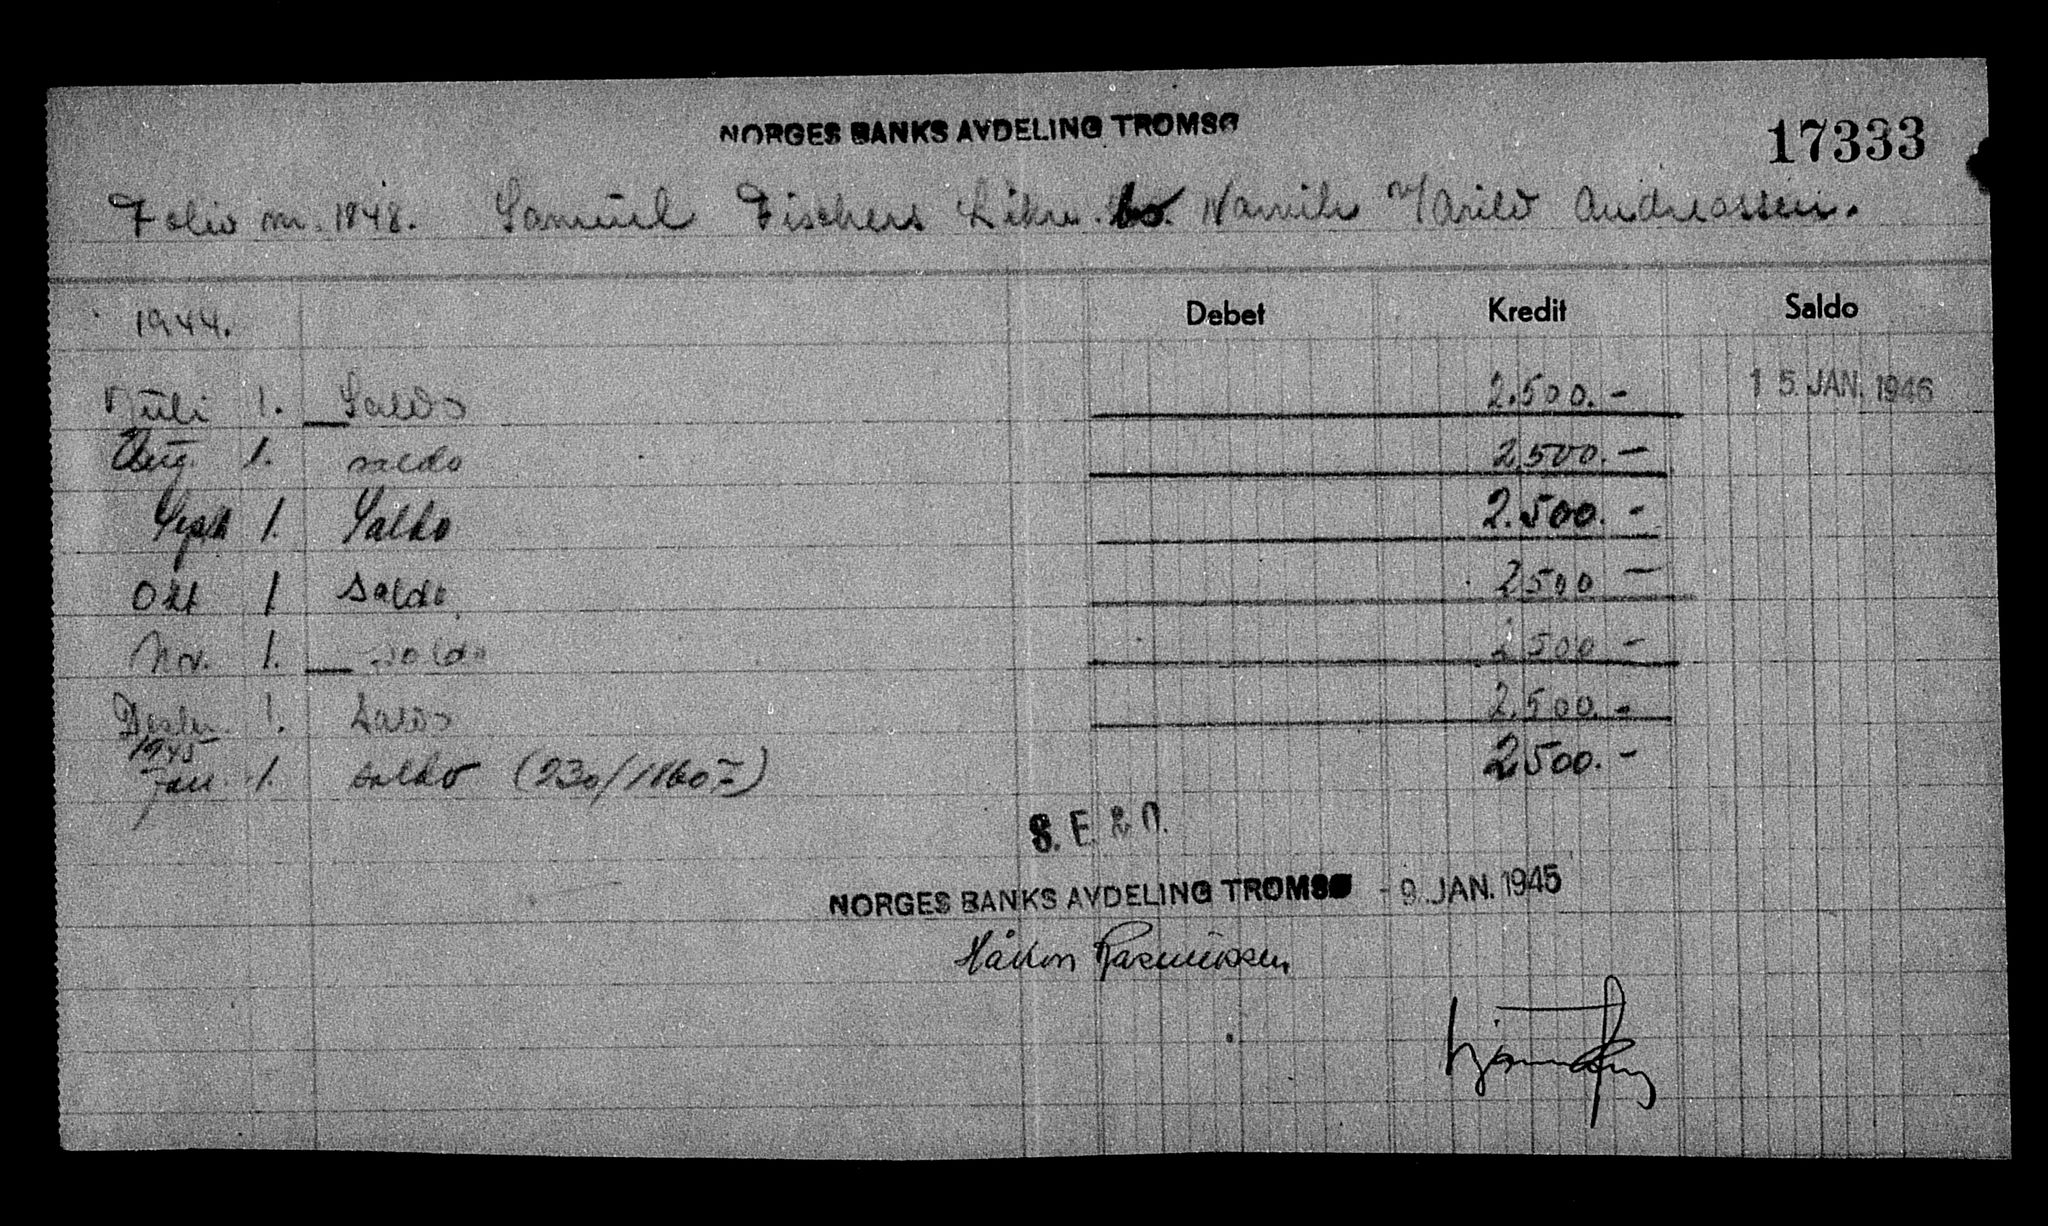 NORGES BANKS AVDELING TROMSØ
17333
Folio nr. 1848. Samuel Fischers Likv. bo. Andreassen.
1944. Debet Kredit Saldo
Juli 1. Saldo 2.500.- 15. JAN. 1946
Aug. 1. saldo 2.500.-
Sept 1. Saldo 2.500.-
Okt 1 saldo 2500 -
Nov. 1. saldo 2.500 -
Desbr. 1. Saldo 2.500.-
1945
Jan. 1. saldo 2500.-
S. E. & O.
NORGES BANKS AVDELING TROMSØ - 9. JAN. 1945
Håkon Rasmussen